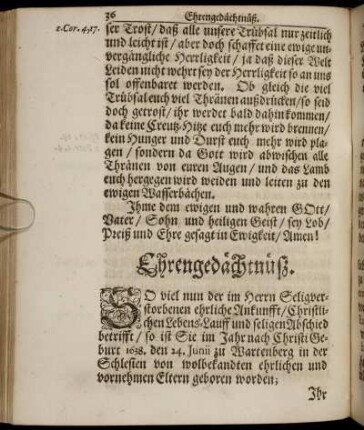 36
Ehrengedächtnüß.
2. Cor. 4. 17.
ser Trost/ daß alle unsere Trübsal nur zeitlich
und leicht ist/ aber doch schaffet eine ewige un-
vergängliche Herrligkeit/ ja daß dieser Welt
Leiden nicht wehrt sey der Herrligkeit so an uns
sol offenbaret werden. Ob gleich die viel
Trübsal euch viel Thränen außdrücken/ so seid
doch getrost/ ihr werdet bald dahin kommen/
da keine Creutz-Hitze euch mehr wird brennen/
kein Hunger und Durst euch mehr wird pla-
gen/ sondern da Gott wird abwischen alle
Thränen von euren Augen/ und das Lamb
euch hergegen wird weiden und leiten zu den
ewigen Wasserbächen.
Ihme dem ewigen und wahren GOtt/
Vater/ Sohn und heiligen Geist/ sey Lob/
Preiß und Ehre gesagt in Ewigkeit/ Amen!
Ehrengedächtnüß.
SO viel nun der im Herrn Seligver-
storbenen ehrliche Ankunfft/ Christli-
chen Lebens-Lauff und seligen Abschied
betrifft/ so ist Sie im Jahr nach Christi Ge-
burt 1638. den 24. Junii zu Wartenberg in der
Schlesien von wolbekandten ehrlichen und
vornehmen Eltern geboren worden;
Ihr